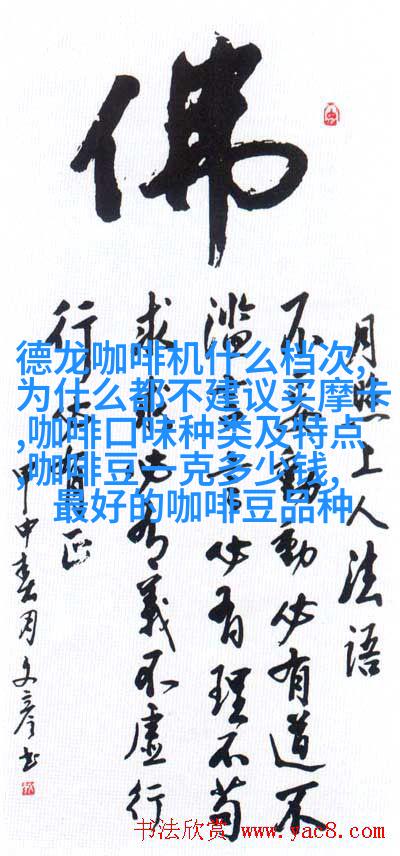 佛
月照上人法語
不妄動動必有道不
滥言言必有理不苟
求求必有義不虚行
行必有正
甲申春月文彦书
德龙咖啡机什么档次,
为什么都不建议买摩卡
,咖啡口味种类及特点
,咖啡豆一克多少钱,
最好的咖啡豆品种
书法欣赏 www.yac8.com